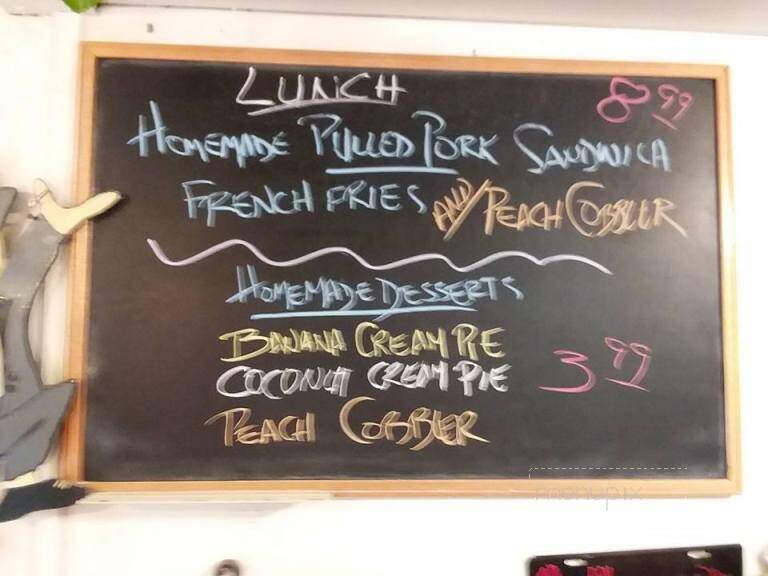 LUNCH 8 99
HOMEMADE PULLED PORK SANDWICH
FRENCH FRIES AND/PEACH COBBLER
HOMEMADE DESSERTS
BANANA CREAM PIE
COCONUT CREAM PIE 3 99
PEACH COBBLER
menupix